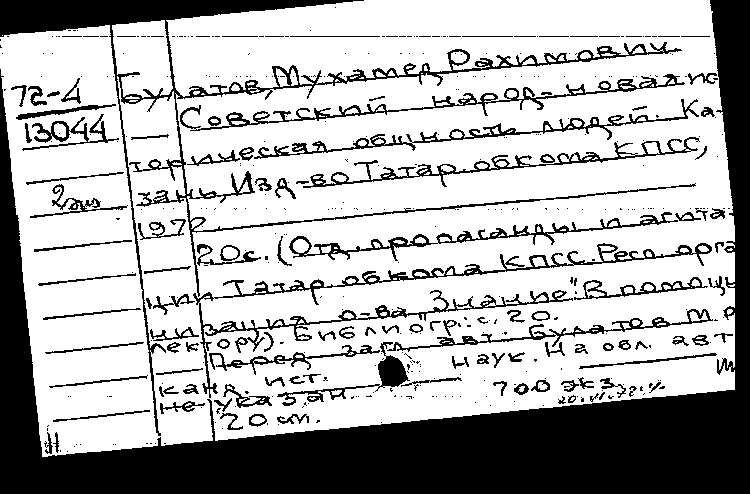 72-4
13044
2 экз
Булатов, Мухамед Рахимович
Советский народ - новая ис
торическая общность людей. Ка-
зань, Изд-во Татар. обкома КПСС,
1972.
20с. (Отд. пропаганды и агита-
ции Татар. обкома КПСС. Респ. орга
низация о-ва "Знание". В помощь
лектору). Библиогр.: с. 20.
Перед загл. авт.: Булатов М.Р.
канд. ист. наук. На обл. авт
не указан. 700 экз.
20 см.